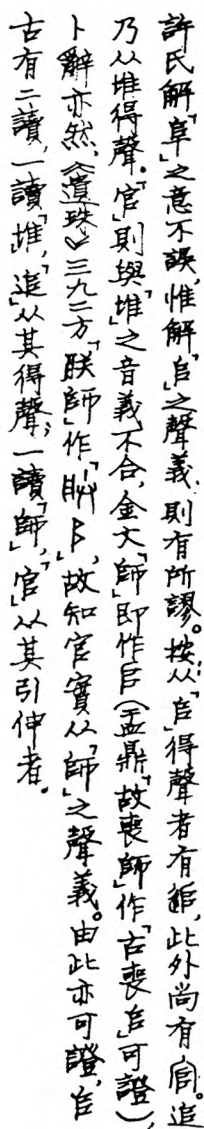 許氏解「𨸏」之意不誤，惟解「𠂤」之聲義，則有所謬。按：从「𠂤」得聲者有追，此外尚有官。追
乃从堆得聲。「官」則與「堆」之音義不合，金文「師」即作𠂤（盂鼎「故喪師」作「古喪𠂤」可證），
卜辭亦然，《遺珠》三九二方「朕師」作「𠂤」，故知官實从「師」之聲義。由此亦可證，𠂤
古有二讀，一讀「堆」，「追」从其得聲；一讀「師」，「官」从其引伸者。